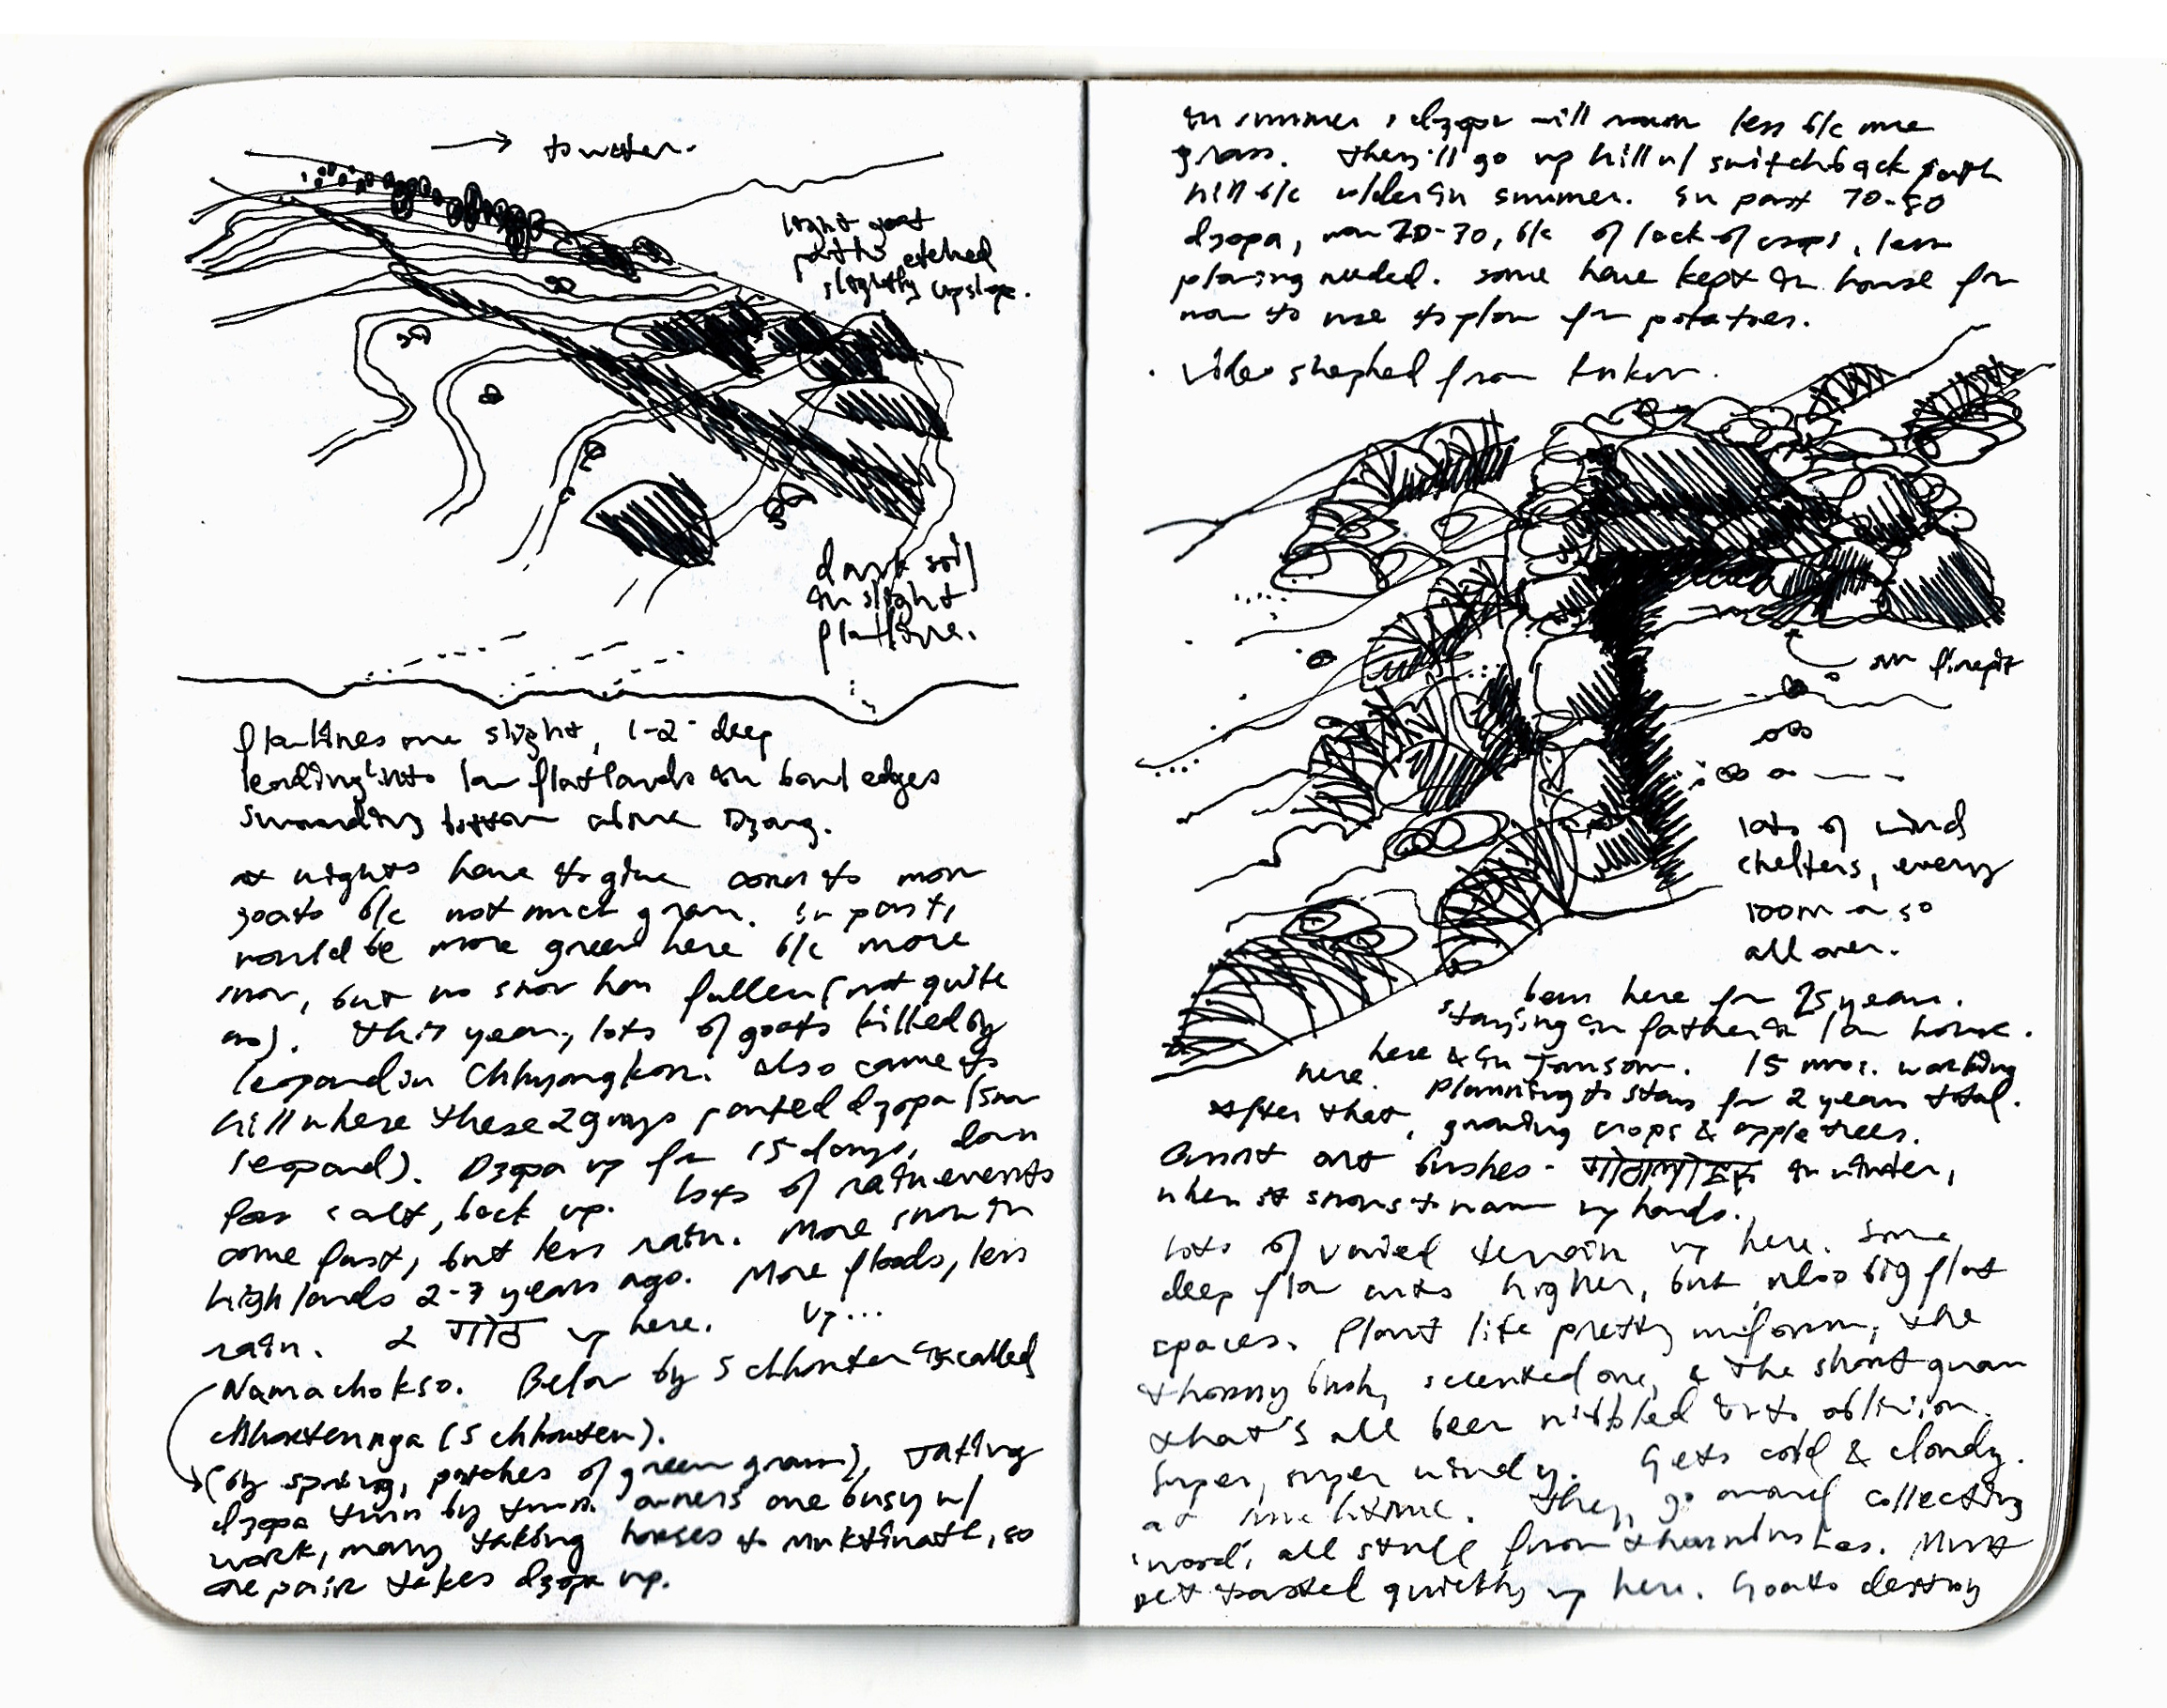 → to water.
light goat
paths etched
slightly upslope.
dark soil
in slight
flowlines.
flowlines are slight, 1-2' deep
leading into low flatlands in bowl edges
surrounding bottom above Dzong.
at nights have to give corn to mom
goats b/c not much grass. in past,
would be more green here b/c more
snow, but no snow has fallen (not quite
so). this year, lots of goats killed by
leopard in Chhyongkor. Also came to
hill where these 2 guys ported dzopa (snow
leopard). Dzopa up for 15 days, down
for salt, back up. lots of rain events
come fast, but less rain. More snow in
highlands 2-3 years ago. More floods, less
rain. 2 गोठ up here. up...
Namachokso. Below by 5 chhorten is called
Chhortennga (5 chhorten).
(by spring, patches of green grass), taking
dzopa turn by turn. owners are busy w/
work, many taking horses to Muktinath, so
one pair takes dzopa up.
in summer, dzopa will roam less b/c more
grass. they'll go up hill w/ switchback path
hill b/c colder in summer. in past 70-80
dzopa, now 20-30, b/c of lack of crops, less
plowing needed. some have kept in house for
now to use to plow for potatoes.
. Video shephed from
our firepit
lots of wind
chelters, every
100m or so
all over.
been here for 25 years.
staying in father in law house.
here & in Jomsom. 15 mos. working
here. Planning to stay for 2 years total.
After that, growing crops & apple trees.
burnt out bushes - in winter,
when it snows to warm up hands.
lots of varied terrain up here. Some
deep flow cuts higher, but also big flat
spaces. Plant life pretty uniform, the
thorny bush, scented one, & the short grass
that's all been nibbled into oblivion.
Super, super windy. Gets cold & cloudy
at lunchtime. They go around collecting
'wood', all stuff from thornbushes. Must
get toasted quickly up here. Goats destroy